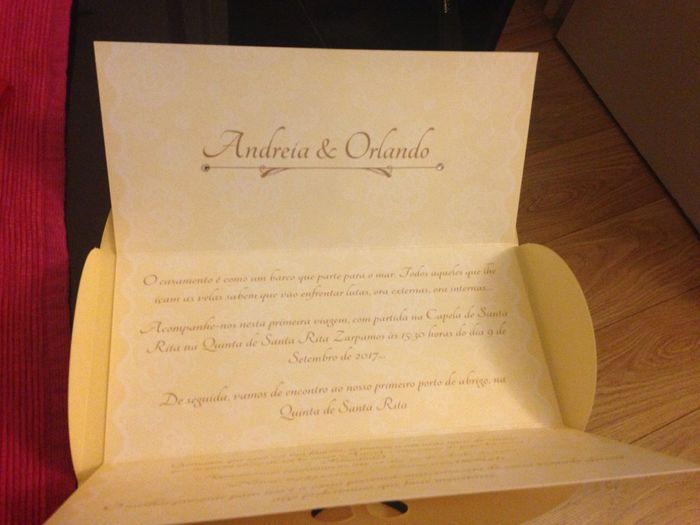 Andreia & Orlando
O casamento é como um barco que parte para o mar. Todos aqueles que lhe
içam as velas sabem que vão enfrentar lutas, ora externas, ora internas...
Acompanhe-nos nesta primeira viagem, com partida na Capela de Santa
Rita na Quinta de Santa Rita Zarpamos às 15:30 horas do dia 9 de
Setembro de 2017...
De seguida, vamos de encontro ao nosso primeiro porto de abrigo, na
Quinta de Santa Rita